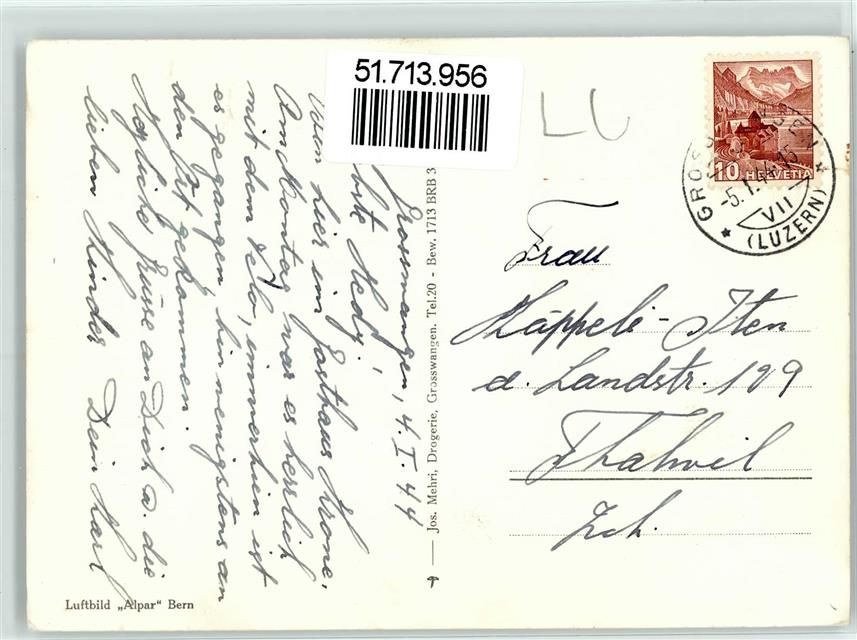 51.713.956
LU
Grosswangen, 4. I. 44
Hedy!
hier im Gasthaus Krone.
Am Montag war es herrlich
mit dem Velo, immerhien ist
es gegangen, bin wenigstens an
den Ort gekommen.
Herzliche Grüsse an Dich u. die
lieben Kinder Dein Karl
Jos. Mehri, Drogerie, Grosswangen. Tel.20 - Bew. 1713 BRB 3
Luftbild „Alpar" Bern
10 HELVETIA
-5.1.44-15
VII
(LUZERN)
Frau
Käppeli-Iten
a. Landstr. 129
Thalwil
Zch.